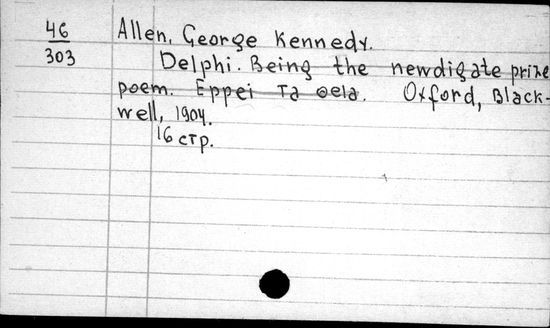 46 Allen, George Kennedy.
303 Delphi. Being the newdigate prize
poem. Ερρει τα θεία. Oxford, Black-
well, 1904.
16 стр.